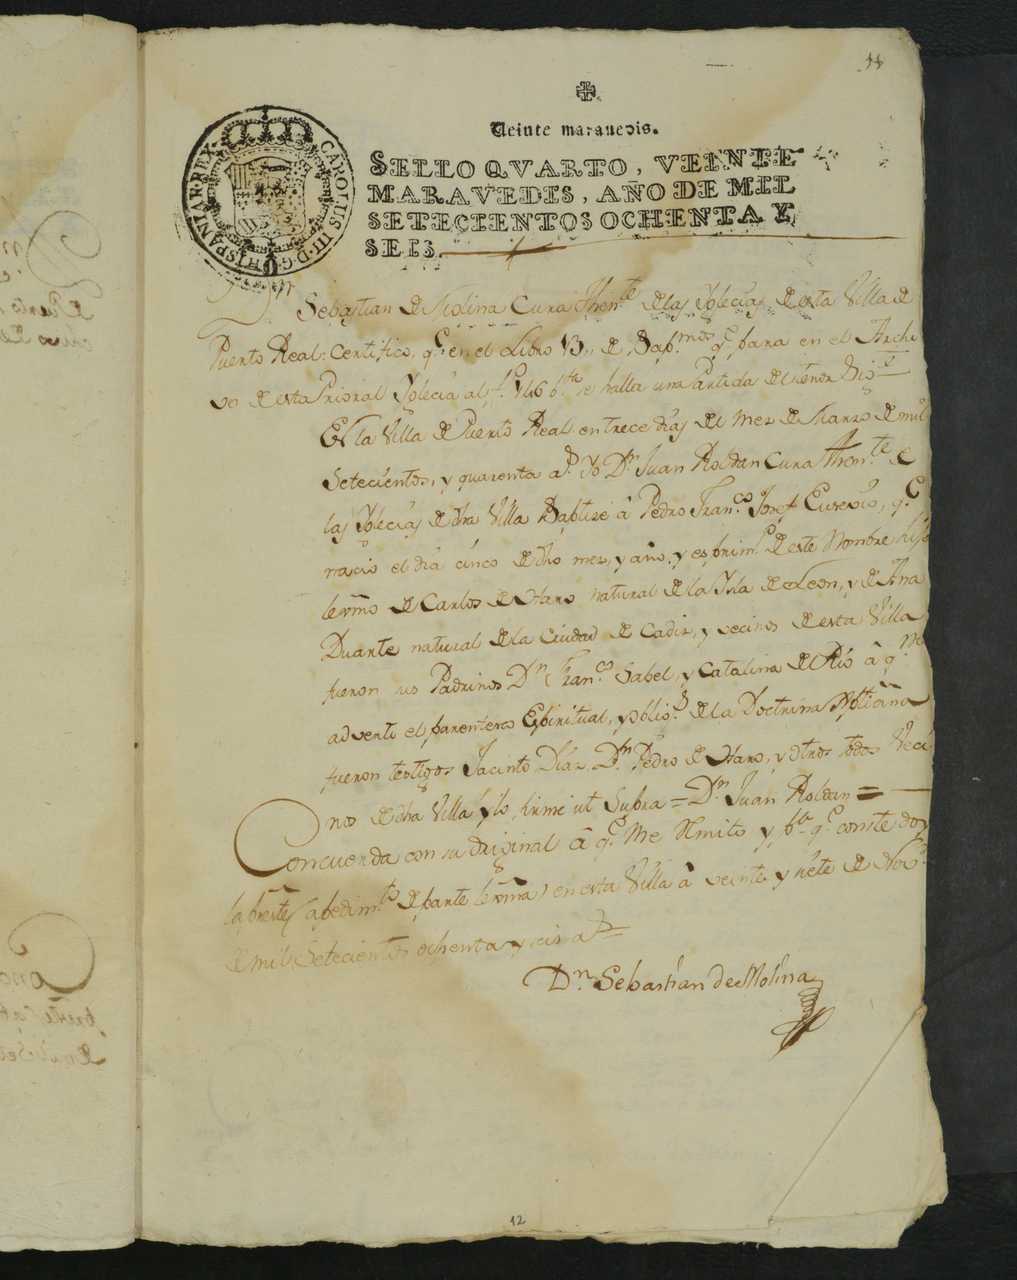 44
Veinte maravedis.
SELLO QVARTO, VEINTE
MARAVEDIS, AÑO DE MIL
SETECIENTOS OCHENTA Y
SEIS.
CAROLUS III D G HISPANIAR REX
Sebastian de Molina Cura Then.te de las Yglecias de esta Villa de
Puerto Real: Certifico, q.e en el Libro 13,, de Bap.mos q.e para en el Archi
vo de esta Prioral Yglecia al f.o 146 b.ta se halla una Partida del tenor Sig.te
En la Villa de Puerto Real en trece dias del mes de Marzo de mil
Setecientos, y quarenta a.s Yo D.n Juan Roldan Cura Then.te de
las Yglecias de dha Villa Baptize â Pedro Fran.co Josef Eusevio, q.e
nacio el dia cinco de dho mes, y año, y es prim.o de este Nombre hijo
lexmo de Carlos de Haro natural de la Ysla de Leon, y de Ana
Duarte natural de la Ciudad de Cadiz, y vecinos de esta Villa
fueron sus Padrinos D.n Fran.co Sabel, y Catalina del Rio â q.nes
adverti el parentesco Espiritual, y oblig.n de la Doctrina Xptiana
fueron testigos Jacinto Diaz D.n Pedro de Haro, y otros todos Veci
nos de dha Villa y lo firme ut Supra = D.n Juan Roldan =
Concuerda con su original â q.e me Remito y p.a q.e conste doy
la prste (a pedim.to de parte lexma) en esta Villa â veinte y siete de Nov.e
de mil Setecientos ochenta y seis a.s
D.n Sebastian de Molina
12